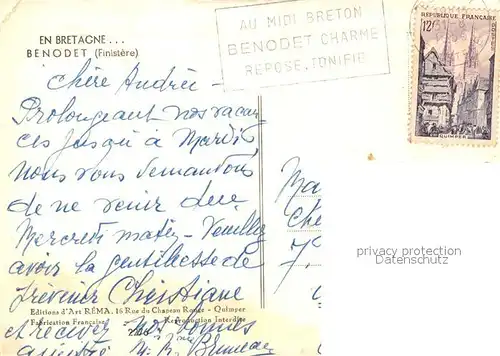 EN BRETAGNE...
BENODET (Finistère)
AU MIDI BRETON
BENODET CHARME
REPOSE, TONIFIE
REPUBLIQUE FRANÇAISE
12F
QUIMPER
Chère Andrée -
Prolongeant nos vacan-
ces jusqu'à Mardi,
nous vous demandons
de ne venir que
Mercredi matin - Veuillez
avoir la gentillesse de
prévenir Christiane
Editions d'Art RÉMA, 16 Rue du Chapeau Rouge - Quimper
Fabrication Française Reproduction Interdite
et recevez nos bonnes
Ma
Che
privacy protection
Datenschutz